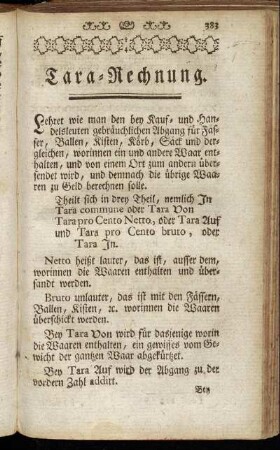 383
Tara-Rechnung.
Lehret wie man den bey Kauf- und Han-
delsleuten gebräuchlichen Abgang für Fäs-
ser, Ballen, Kisten, Körb, Säck und der-
gleichen, worinnen ein und andere Waar ent-
halten, und von einem Ort zum andern über-
sendet wird, und demnach die übrige Waa-
ren zu Geld berechnen solle.
Theilt sich in drey Theil, nemlich In
Tara commune oder Tara Von
Tara pro Cento Netto, oder Tara Auf
und Tara pro Cento bruto, oder
Tara In.
Netto heißt lauter, das ist, ausser dem,
worinnen die Waaren enthalten und über-
sandt werden.
Bruto unlauter, das ist mit den Fässern,
Ballen, Kisten, ꝛc. worinnen die Waaren
überschickt werden.
Bey Tara Von wird für dasjenige worin
die Waaren enthalten, ein gewisses vom Ge-
wicht der gantzen Waar abgekürtzet.
Bey Tara Auf wird der Abgang zu der
vordern Zahl addirt.
Bey